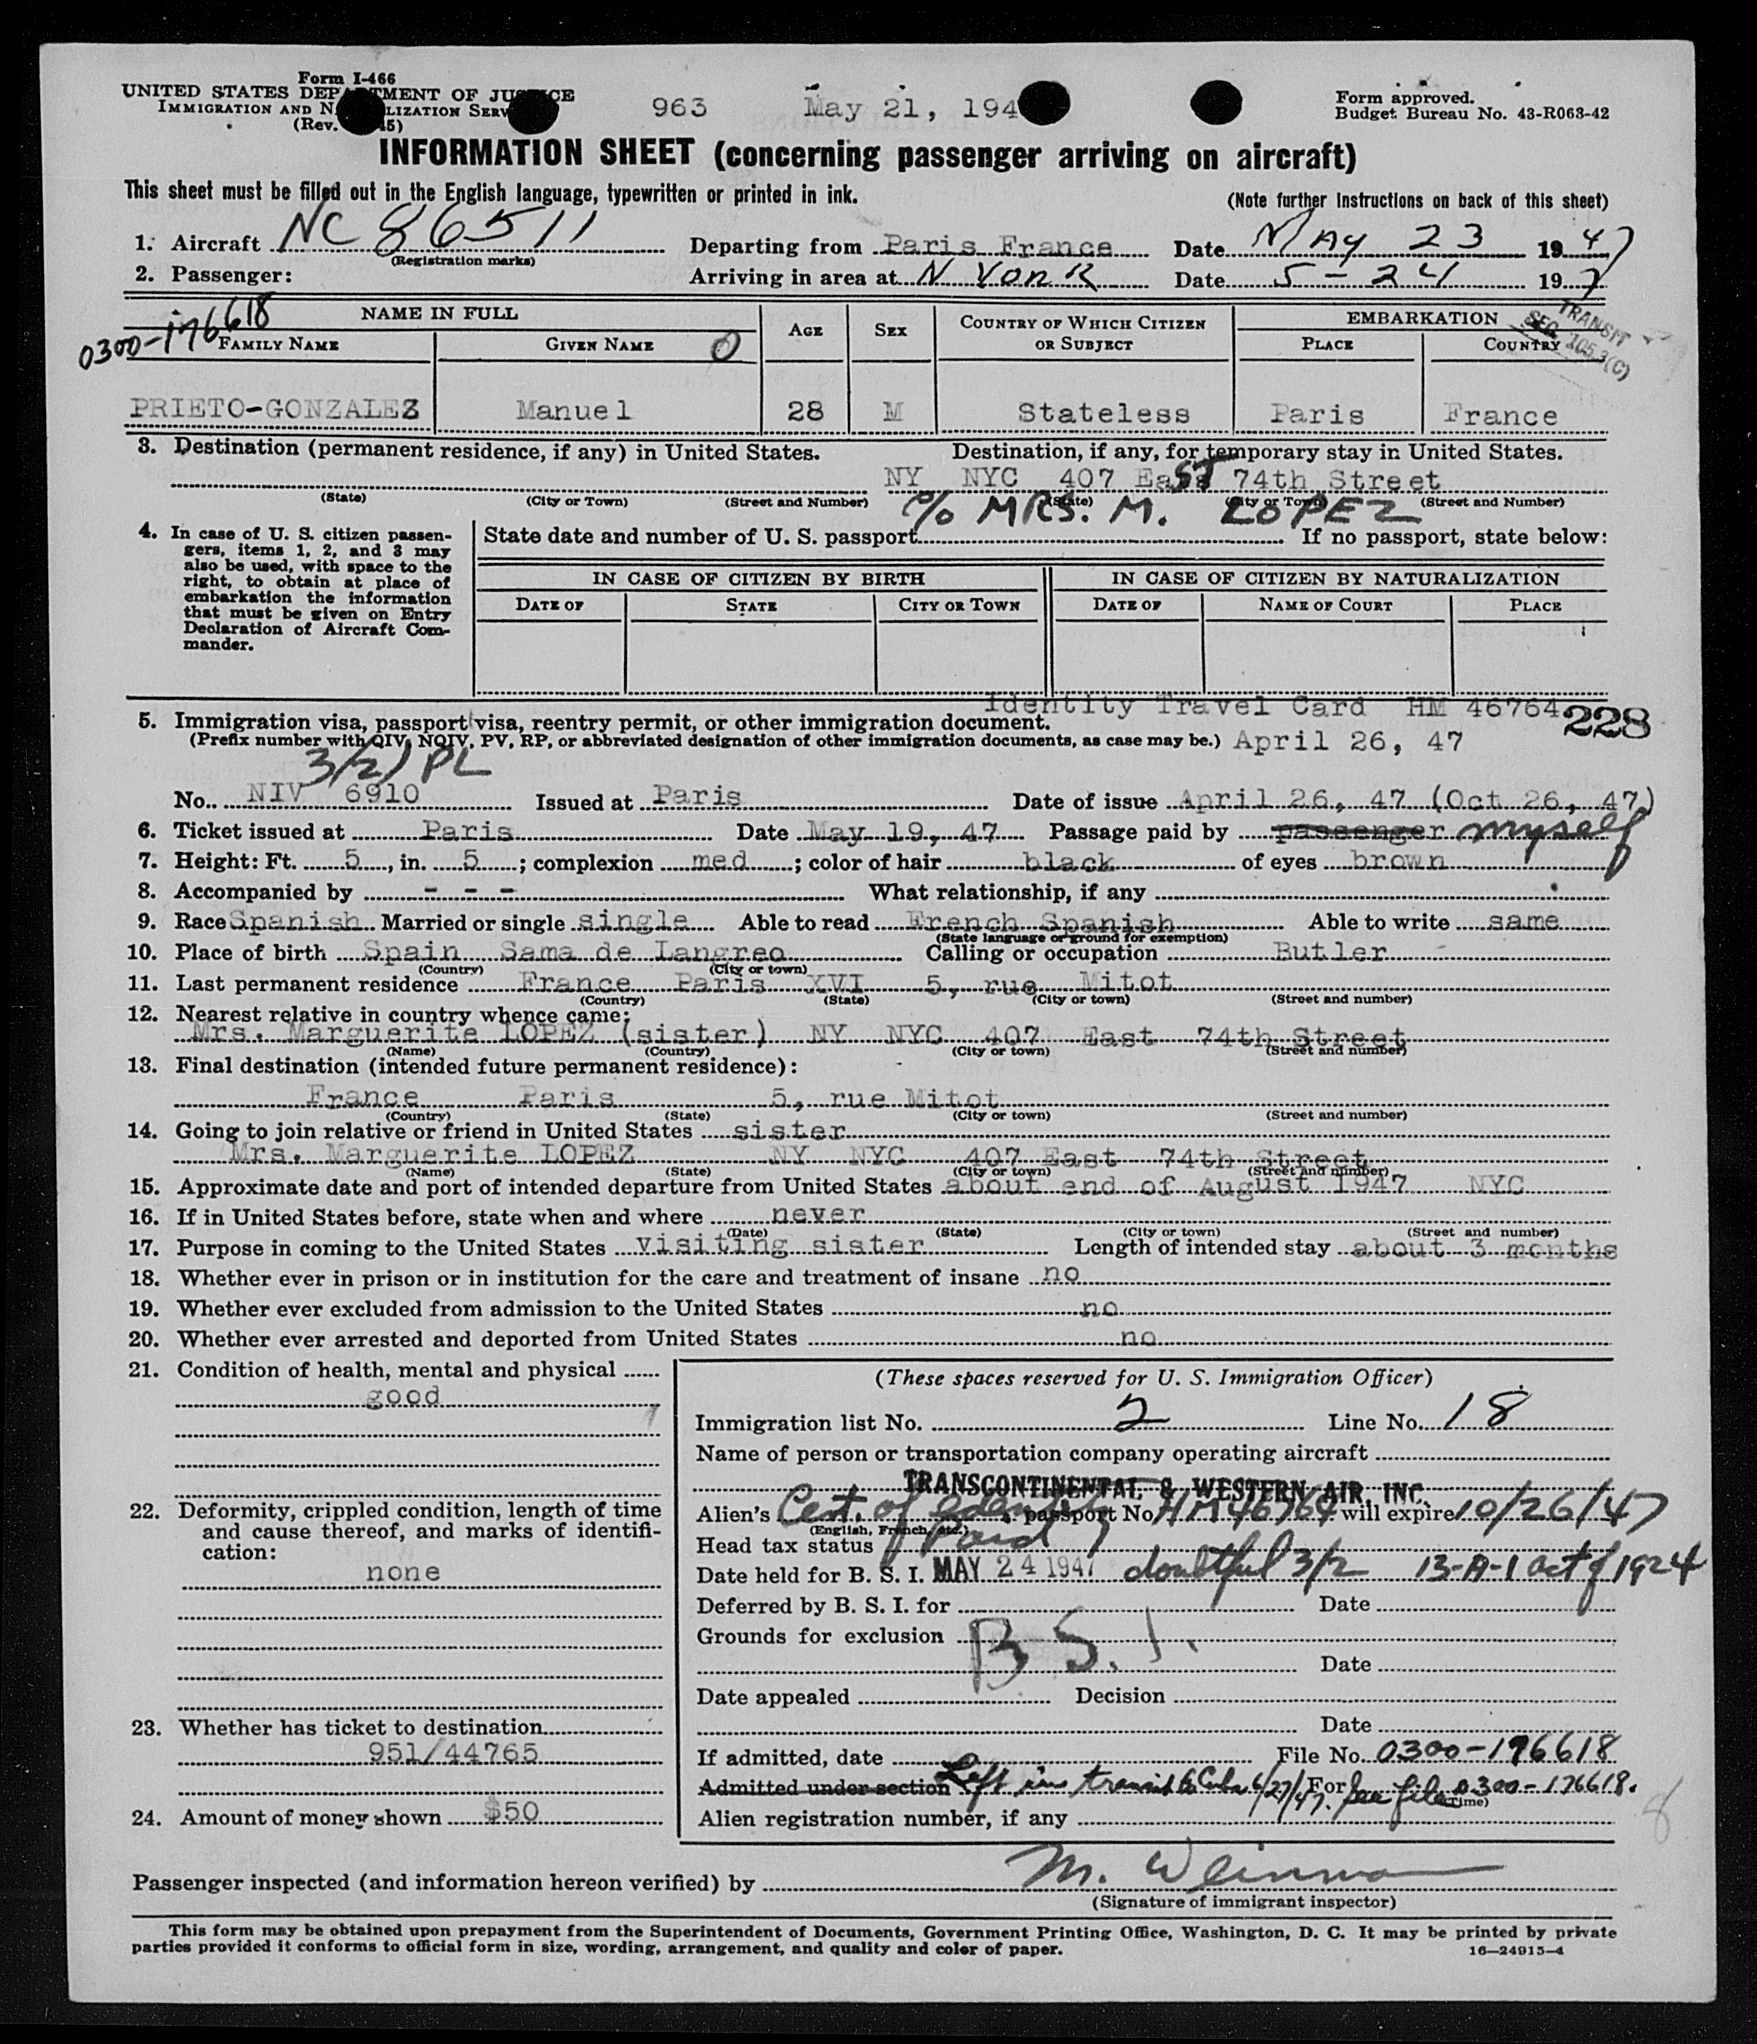 Form I-466
UNITED STATES DEPARTMENT OF JUSTICE
IMMIGRATION AND NATURALIZATION SERV
(Rev. 45)
963 May 21, 194
Form approved.
Budget Bureau No. 43-R063-42
INFORMATION SHEET (concerning passenger arriving on aircraft)
This sheet must be filled out in the English language, typewritten or printed in ink. (Note further instructions on back of this sheet)
1. Aircraft NC 86511 Departing from Paris France Date MAY 23 1947
(Registration marks)
2. Passenger: Arriving in area at N YORK Date 5-24 197
0300-176618
TRANSIT
SEC. 105.3(C)
NAME IN FULL AGE SEX COUNTRY OF WHICH CITIZEN OR SUBJECT EMBARKATION
FAMILY NAME GIVEN NAME 0 PLACE COUNTRY
PRIETO-GONZALEZ Manuel 28 M Stateless Paris France
3. Destination (permanent residence, if any) in United States. Destination, if any, for temporary stay in United States.
NY NYC 407 East 74th Street
(State) (City or Town) (Street and Number) (State) (City or Town) (Street and Number)
% MRS. M. LOPEZ
4. In case of U. S. citizen passen-
gers, items 1, 2, and 3 may
also be used, with space to the
right, to obtain at place of
embarkation the information
that must be given on Entry
Declaration of Aircraft Com-
mander.
State date and number of U. S. passport If no passport, state below:
IN CASE OF CITIZEN BY BIRTH IN CASE OF CITIZEN BY NATURALIZATION
DATE OF STATE CITY OR TOWN DATE OF NAME OF COURT PLACE
Identity Travel Card HM 46764
228
5. Immigration visa, passport visa, reentry permit, or other immigration document.
(Prefix number with QIV, NQIV, PV, RP, or abbreviated designation of other immigration documents, as case may be.) April 26, 47
3/2) PL
No. NIV 6910 Issued at Paris Date of issue April 26, 47 (Oct 26, 47)
6. Ticket issued at Paris Date May 19, 47 Passage paid by passenger myself
7. Height: Ft. 5, in. 5; complexion med; color of hair black of eyes brown
8. Accompanied by - - - What relationship, if any
9. Race Spanish Married or single single Able to read French Spanish Able to write same
(State language or ground for exemption)
10. Place of birth Spain Sama de Langreo Calling or occupation Butler
(Country) (City or town)
11. Last permanent residence France Paris XVI 5, rue Mitot
(Country) (State) (City or town) (Street and number)
12. Nearest relative in country whence came:
Mrs. Marguerite LOPEZ (sister) NY NYC 407 East 74th Street
(Name) (Country) (City or town) (Street and number)
13. Final destination (intended future permanent residence):
France Paris 5, rue Mitot
(Country) (State) (City or town) (Street and number)
14. Going to join relative or friend in United States sister
Mrs. Marguerite LOPEZ NY NYC 407 East 74th Street
(Name) (State) (City or town) (Street and number)
15. Approximate date and port of intended departure from United States about end of August 1947 NYC
16. If in United States before, state when and where never
(Date) (State) (City or town) (Street and number)
17. Purpose in coming to the United States Visiting sister Length of intended stay about 3 months
18. Whether ever in prison or in institution for the care and treatment of insane no
19. Whether ever excluded from admission to the United States no
20. Whether ever arrested and deported from United States no
21. Condition of health, mental and physical
good
22. Deformity, crippled condition, length of time
and cause thereof, and marks of identifi-
cation:
none
23. Whether has ticket to destination
951/44765
24. Amount of money shown $50
(These spaces reserved for U. S. Immigration Officer)
Immigration list No. 2 Line No. 18
Name of person or transportation company operating aircraft
TRANSCONTINENTAL & WESTERN AIR, INC.
Alien's Cert. of Identity passport No. HM 46764 will expire 10/26/47
(English, French, etc.)
Head tax status Paid
Date held for B. S. I. MAY 24 1947 doubtful 3/2 13-A-1 act of 1924
Deferred by B. S. I. for Date
Grounds for exclusion B S. I.
Date
Date appealed Decision
Date
If admitted, date File No. 0300-176618
Admitted under section Left in transit to Cuba 6/27/47. For See file 0300-176618.
(Time)
Alien registration number, if any
8
Passenger inspected (and information hereon verified) by M. Weinman
(Signature of immigrant inspector)
This form may be obtained upon prepayment from the Superintendent of Documents, Government Printing Office, Washington, D. C. It may be printed by private
parties provided it conforms to official form in size, wording, arrangement, and quality and color of paper. 16—24915-4